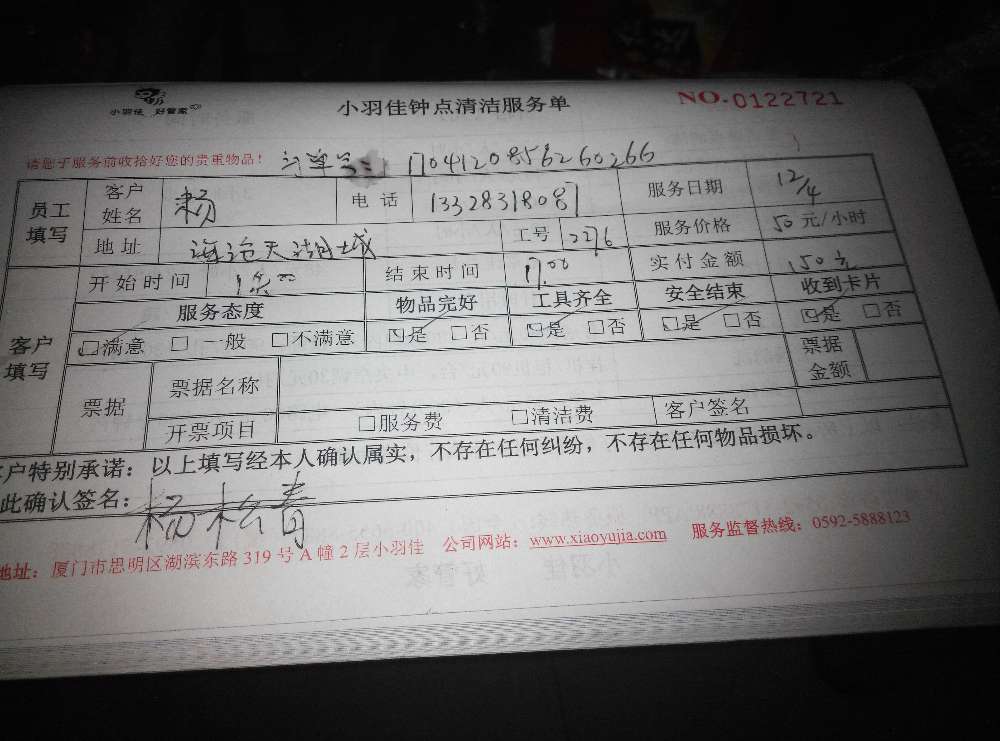 小羽佳 好管家
小羽佳钟点清洁服务单
NO.0122721
请您于服务前收拾好您的贵重物品！
订单号: 170412085626026​6
员工填写 客户姓名 杨 电话 13328318081 服务日期 12/4
地址 海沧天湖城 工号 2276 服务价格 50元/小时
开始时间 结束时间 17:00 实付金额 150元
客户填写 服务态度 物品完好 工具齐全 安全结束 收到卡片
□满意 □一般 □不满意 □是 □否 □是 □否 □是 □否 □是 □否
票据 票据名称 票据金额
开票项目 □服务费 □清洁费 客户签名
客户特别承诺：以上填写经本人确认属实，不存在任何纠纷，不存在任何物品损坏。
此确认签名：杨松青
地址：厦门市思明区湖滨东路319号A幢2层小羽佳 公司网站：www.xiaoyujia.com 服务监督热线：0592-5888123